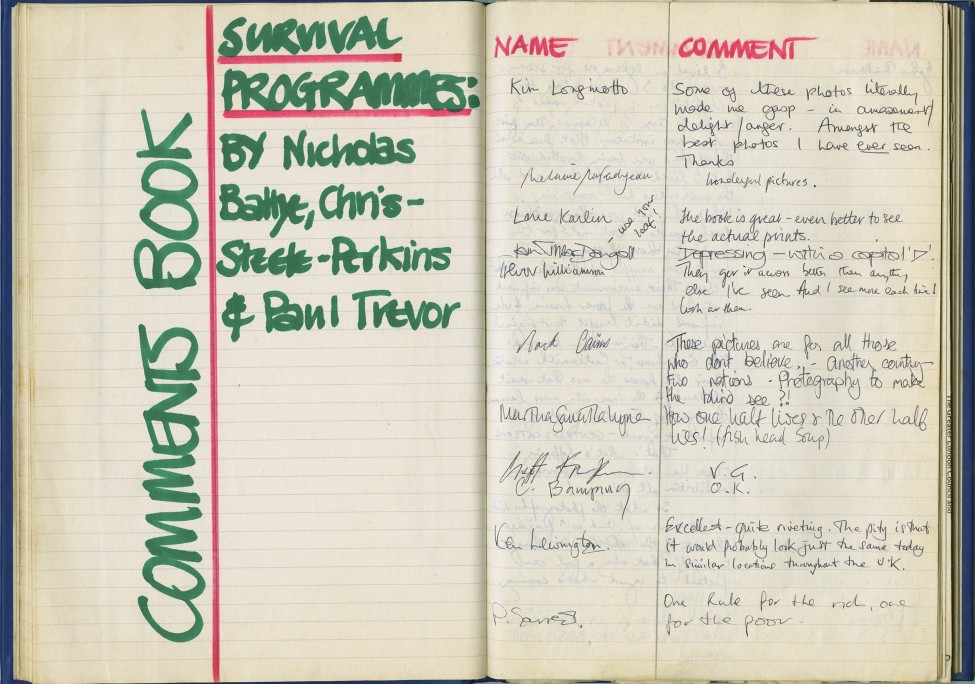 COMMENTS BOOK
SURVIVAL
PROGRAMMES:
BY Nicholas
Battye, Chris-
Steele-Perkins
& Paul Trevor
NAME COMMENT
Kim Longinotto Some of these photos literally
made me gasp - in amazement/
delight/anger. Amongst the
best photos I have ever seen.
Thanks
wonderful pictures.
Lorie Karlin The book is great - even better to see
the actual prints.
- use your loaf!
Depressing - with a capital 'D'.
Williamson They get it across better than anything
else I've seen And I see more each time I
look at them.
Mark Cains These pictures are for all those
who dont believe.. - Another country -
two nations - Photography to make
the blind see ?!
Martha How one half lives & the other half
lies! (fish head soup)
V.G.
C. Bampny O.K.
Ken Lewington. Excellent - quite riveting. The pity is that
it would probably look just the same today
in similar locations throughout the U.K.
P. One Rule for the rich, one
for the poor.